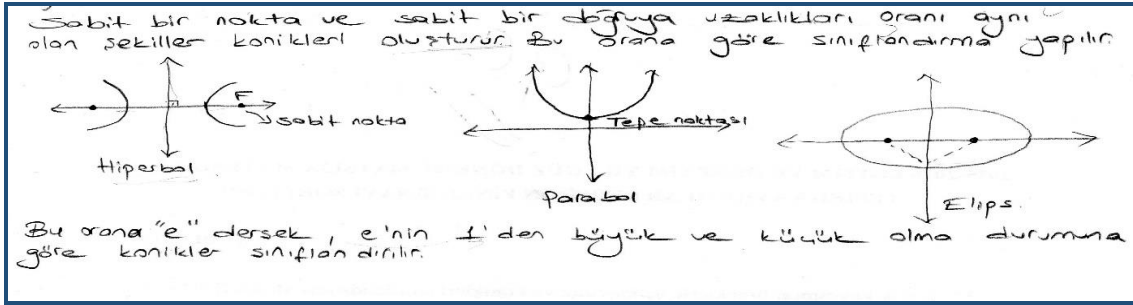 Sabit bir nokta ve sabit bir doğruya uzaklıkları oranı aynı
olan şekiller konikleri oluşturur. Bu orana göre sınıflandırma yapılır.
F
Sabit nokta
Hiperbol
Tepe noktası
Parabol
Elips.
Bu orana "e" dersek, e'nin 1'den büyük ve küçük olma durumuna
göre konikler sınıflandırılır.